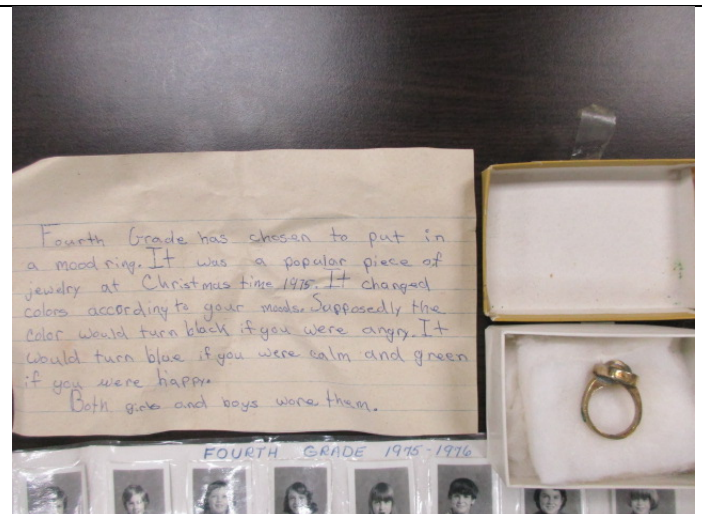 Fourth Grade has chosen to put in
a mood ring. It was a popular piece of
jewelry at Christmas time 1975. It changed
colors according to your moods. Supposedly the
color would turn black if you were angry. It
would turn blue if you were calm and green
if you were happy.
Both girls and boys wore them.
FOURTH GRADE 1975-1976